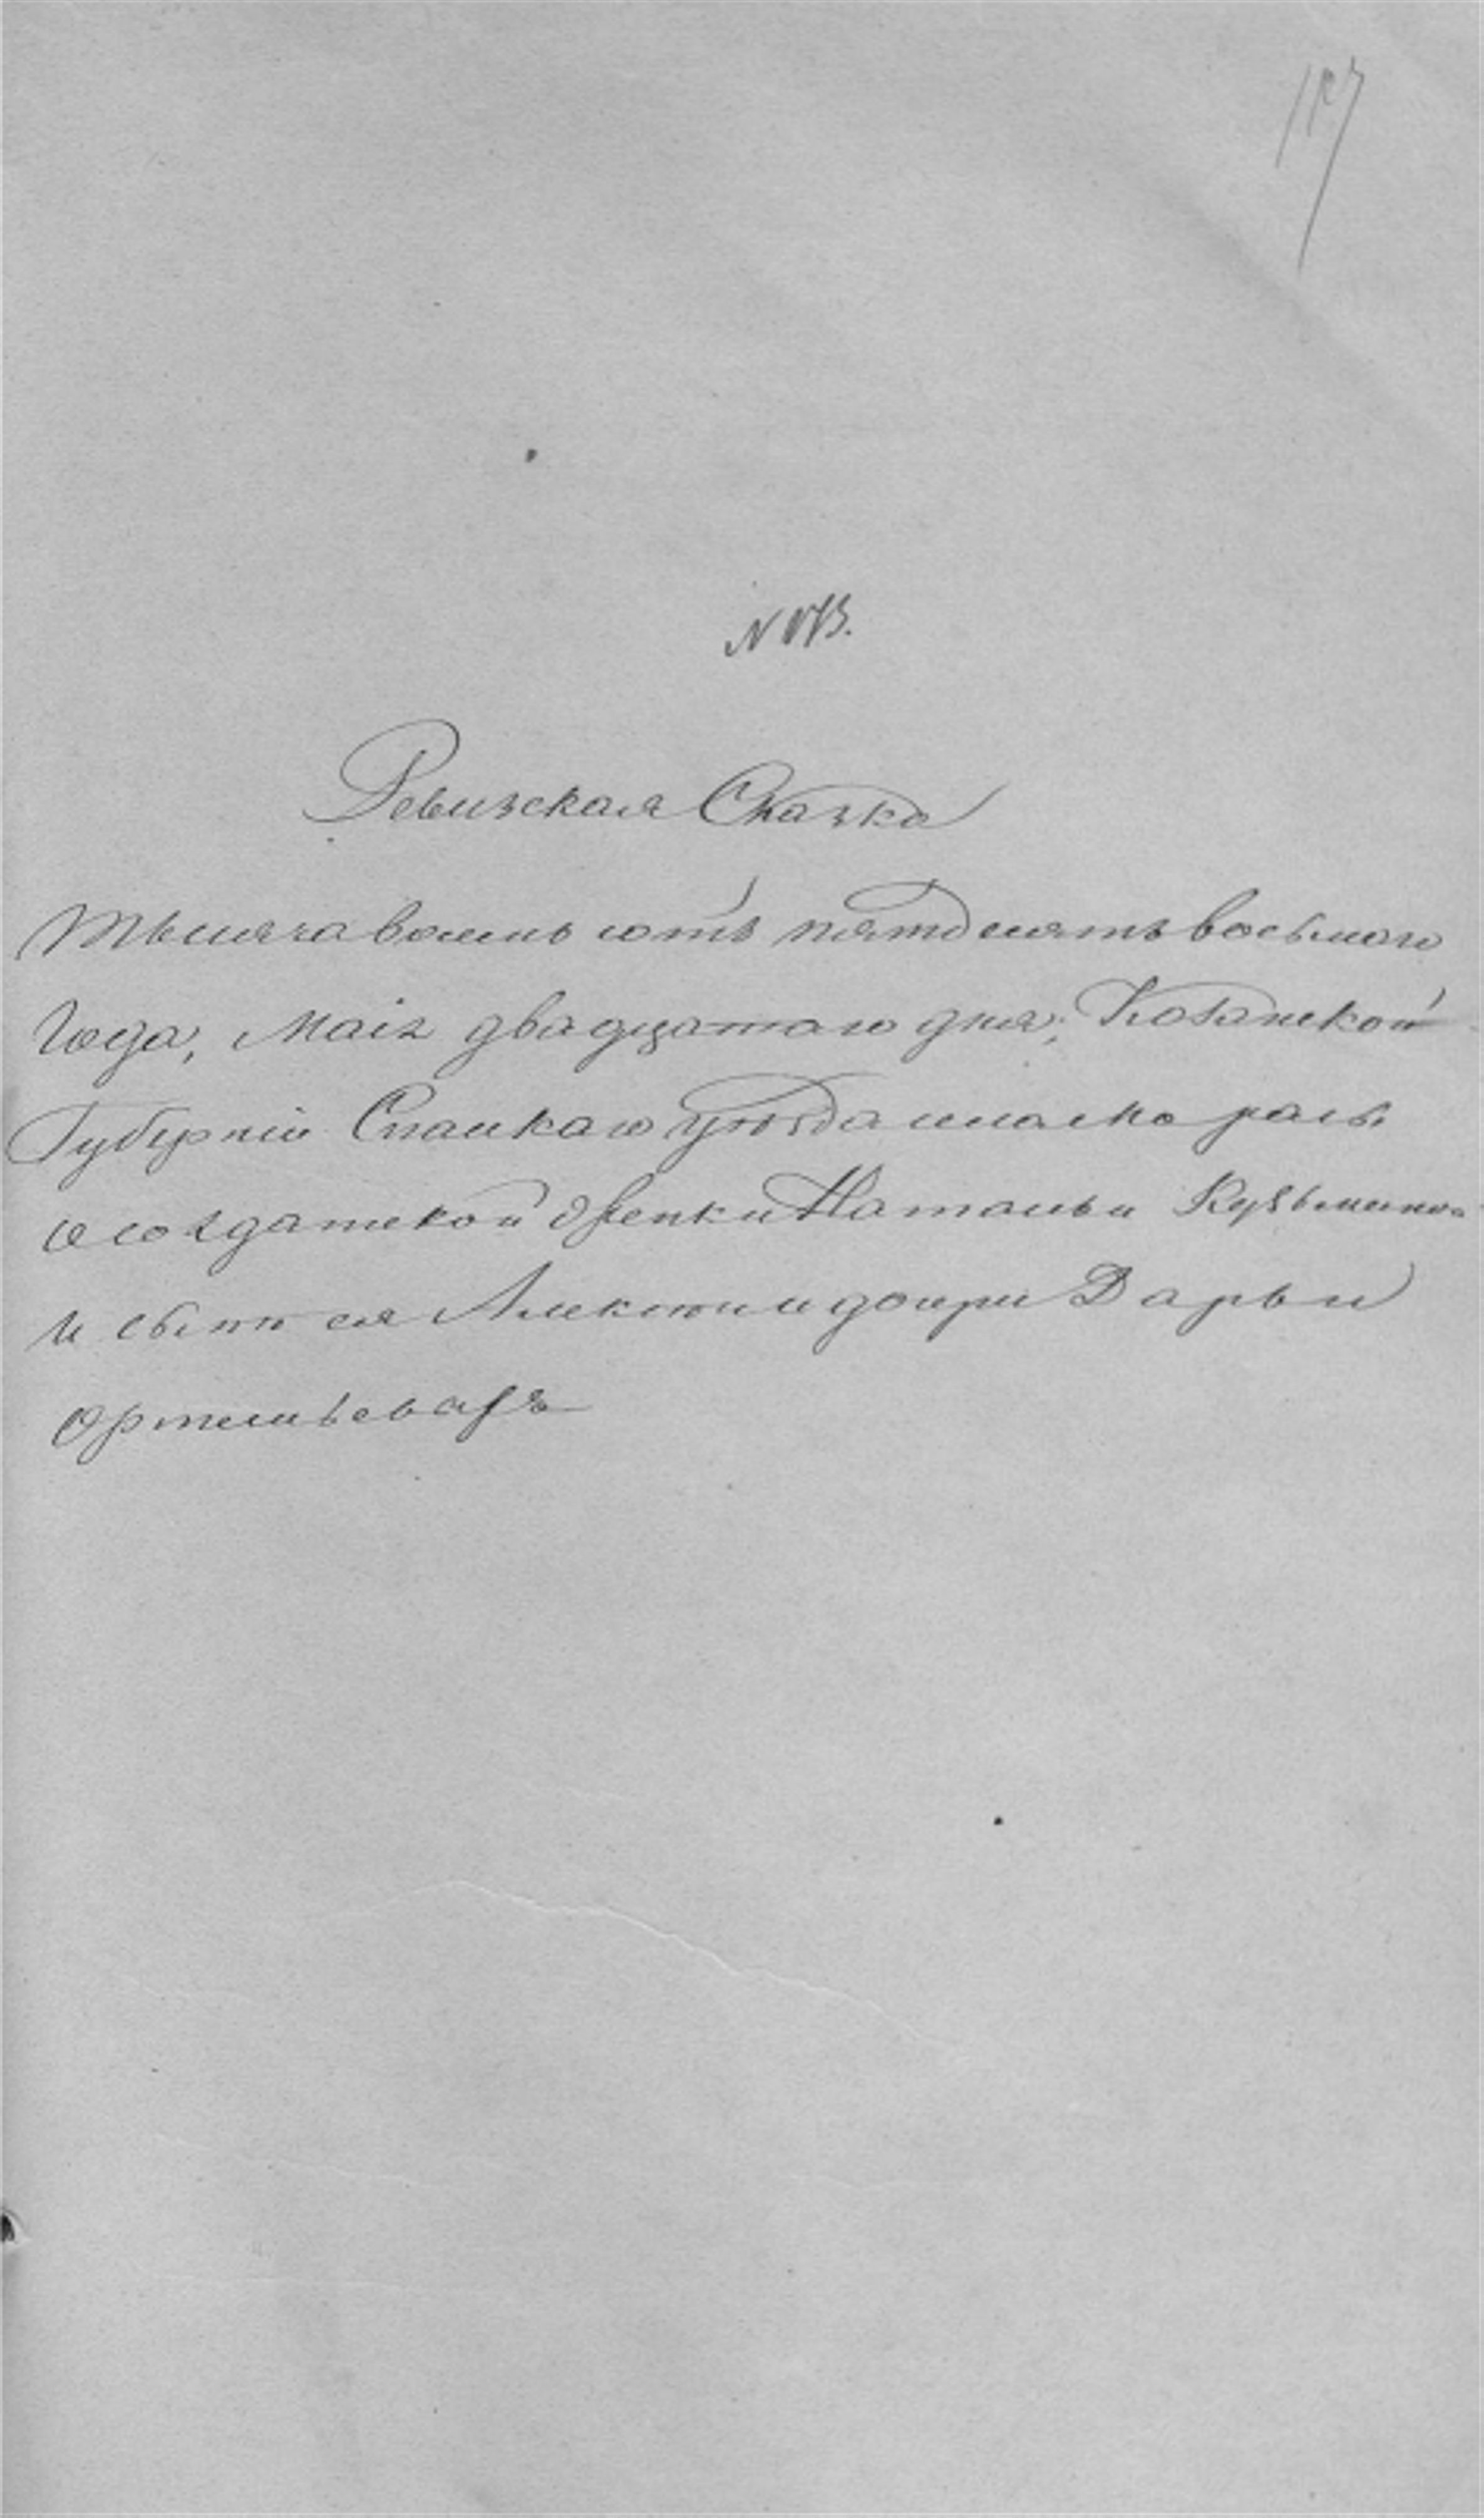 Ревизская Сказка
Тысяча восемь сотъ пятдесятъ восьмаго
Года, Маія двадцатаго дня, Казанской
Губерніи Спаскаго уѣзда села
о солдатской женки Натальи Кузьминой
и сынѣ ея Алексѣи и дочери Дарьи
Ортемьевахъ